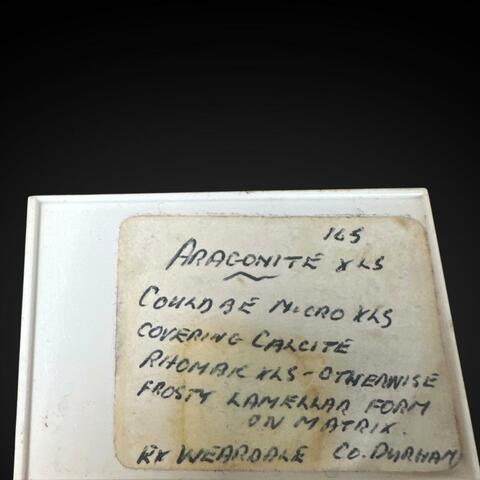 165
ARAGONITE XLS
COULD BE MICRO XLS
COVERING CALCITE
RHOMAR XLS - OTHERWISE
FROSTY LAMELLAR FORM
ON MATRIX.
WEARDALE CO. DURHAM